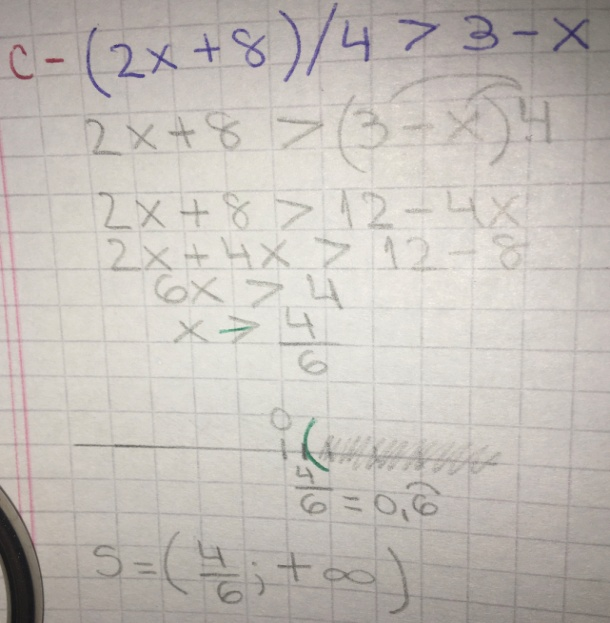 c - (2x+8)/4 > 3 - x
2x + 8 > (3 - x)4
2x + 8 > 12 - 4x
2x + 4x > 12 - 8
6x > 4
x > 4/6
0
(
4/6 = 0,6̑
S = (4/6 ; +∞)